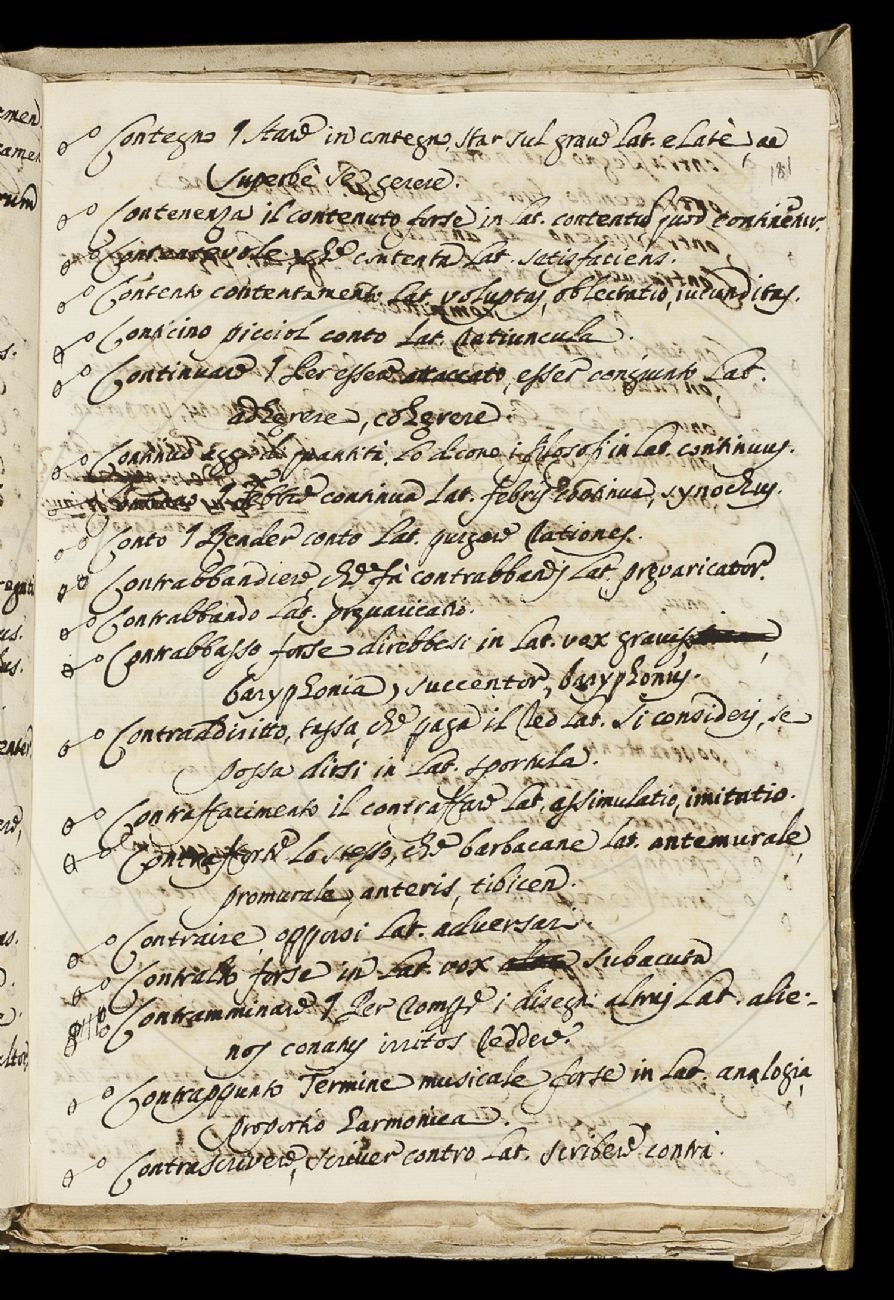 Contegno ¶ Stare in contegno, star sul grave Lat. elatè, ac
181
Superbè se gerere.
Contenenza il contenuto forse in Lat. contentus quod continetur.
Contentevole, che contenta Lat. satisfaciens.
Contento contentamento Lat. voluptas, oblectatio, iucunditas.
Conticino picciol conto Lat. ratiuncula.
Continuare ¶ Per essere attaccato, esser congiunto Lat.
adhęrere, cohęrere.
Continuo Agg. di quantità, lo dicono i filosofi in Lat. continuus.
¶ Febbre continua Lat. febris continua, synochus.
Conto ¶ Render conto Lat. purgare rationes.
Contrabbandiere, che fà contrabbandi Lat. pręvaricator.
Contrabbando Lat. pręvaricatio.
Contrabbasso forse direbbesi in Lat. vox gravis,
baryphonia, succentor, baryphonus.
Contraddiritto, tassa, che paga il Reo Lat. Si consideri, se
possa dirsi in Lat. sportula.
Contraffacimento il contraffare Lat. assimulatio, imitatio.
Contrafforte lo stesso, che barbacane Lat. antemurale,
promurale, anteris, tibicen.
Contraire opporsi Lat. adversari.
Contralto forse in Lat. vox subacuta
Contramminare ¶ Per Romper i disegni altrui Lat. alie-
nos conatus irritos reddere.
Contrappunto Termine musicale forse in Lat. analogia,
proportio harmonica.
Contrascrivere, scriver contro Lat. scribere contra.